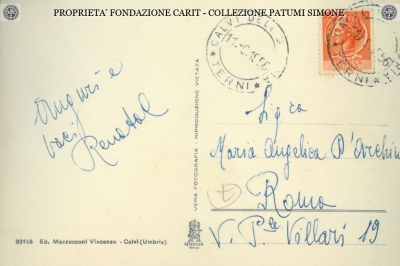 PROPRIETA' FONDAZIONE CARIT - COLLEZIONE PATUMI SIMONE
CALVI DELL'U
TERNI
Auguri e
baci
Renata
VERA FOTOGRAFIA - RIPRODUZIONE VIETATA
Sig.ra
Maria Angelica D'
Roma
V. P.le Villari 19
33156 Ed. Marzocconi Vincenzo - Calvi (Umbria)